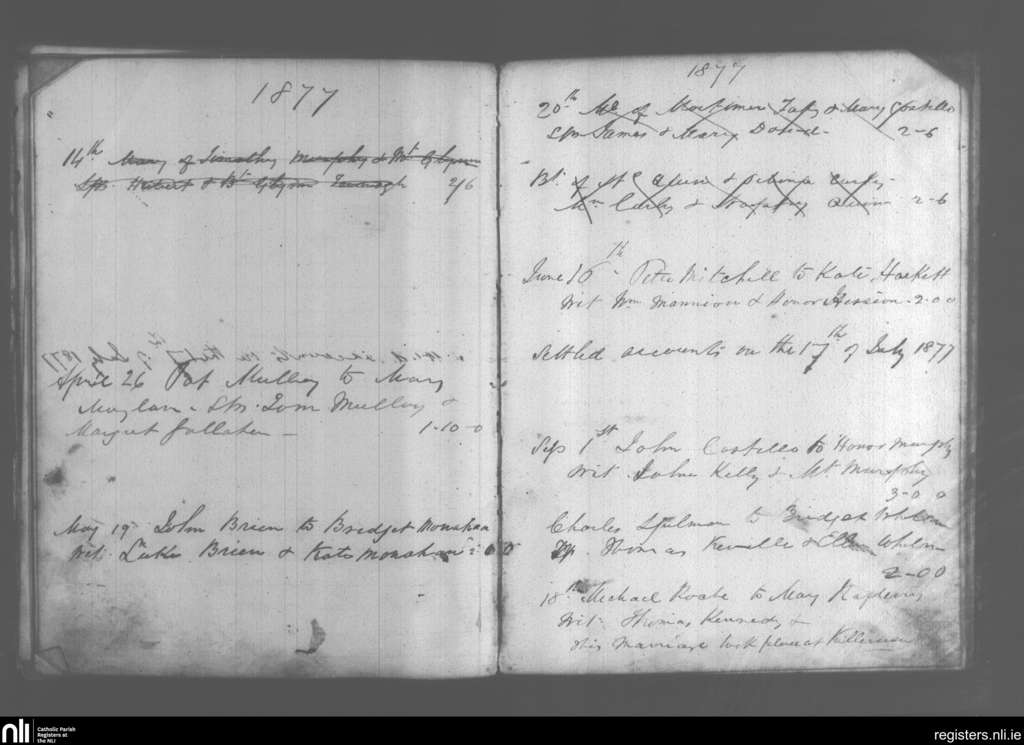 1877
14th Mary of Timothy Murphy & Mt Glynn
Sps. Hubert & Bt Glynn 2/6
April 26 Pat Mulloy to Mary
Moylan. Sps. Tom Mulloy &
Margret Gallaher 1-10-0
May 19 John Brien to Bridget Monahan
Wit. Luke Brien & Kate Monahan 2 0 0
1877
20th Ml of Mortimer & Mary Costello
Sps James & Mary 2-6
Bt. of & Delia Curley
Wm Curley & 2-6
June 16th Peter Mitchell to Kate Haskett
Wit Wm Mannion & Honor Gession 2-0 0
Settled accounts on the 17th of July 1877
Sep 1st John Costello to Honor Murphy
Wit John Kelly & Mt Murphy
3-0 0
Charles to Bridget
Sp. Thomas Keville & Ellen
2-00
18th Michael Roche to Mary
Wit Thomas Kennedy &
this marriage took place at
nli
Catholic Parish
Registers at
the NLI
registers.nli.ie